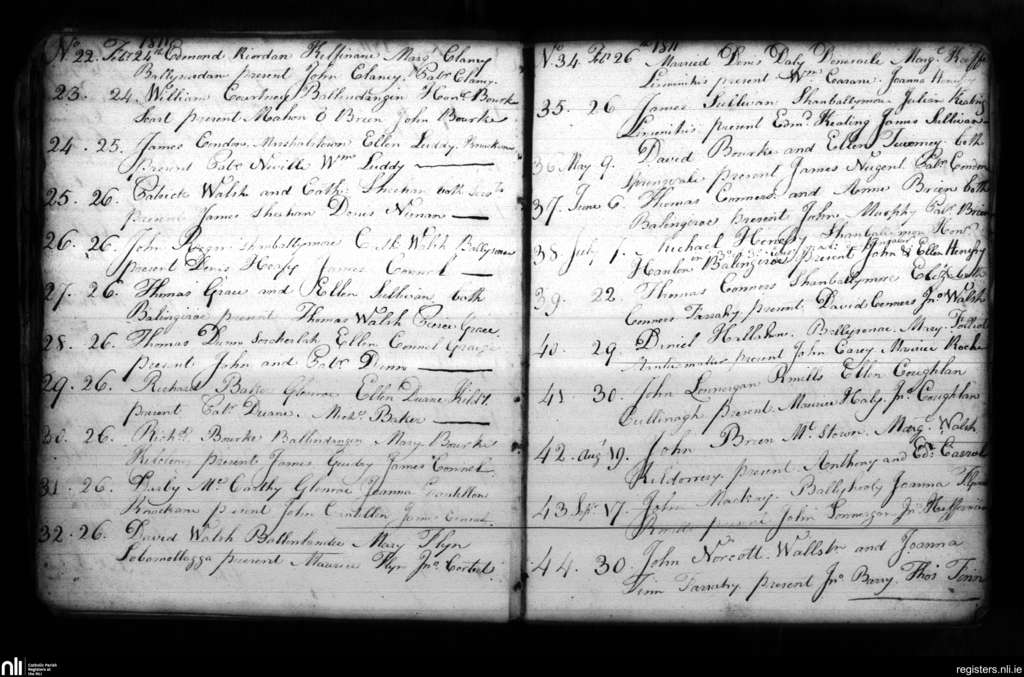 1811
No. 22. Feby. 24th Edmond Riordan Kiffinane Margt. Clancy
Ballysudan present John Clancy. Patk. Clancy.
23. 24. William Courtney Ballindangin Honr. Bourke
Scart present Mahon O Brien John Bourke
24. 25. James Condon Marshalstown Ellen Luddy Knockan
Present Patk. Neville Wm. Luddy
25. 26. Patrick Walsh and Cath: Sheehan both
present James Sheehan Denis Ninan
26. 26. John Ryan Shanballymore Walsh Ballyronee
present Denis Heafy James Connel
27. 26. Thomas Grace and Ellen Sullivan both
Balingirae present Thomas Walsh Peirce Grace
28. 26. Thomas Dunn Ellen Connel Graige
present John and Patk. Dunn
29. 26. Richard Baker Glenroe Ellen Duane Kild.
present Patk. Duane. Michl. Baker
30. 26. Richd. Bourke Ballindangin Mary Bourke
present James James Connel.
31. 26. Darby Mc. Carthy Glenroe Joanna
Knockane present John James
32. 26. David Walsh Ballenlandee Mary Flyn
present Maurice Flyn Jno.
1811
No. 34. Feby. 26 Married Denis Daly Doneraile Margt. Keeffe
present Wm. Joanna
35. 26 James Sullivan Shanballymore Julian Keating
present Edmd. Keating James Sullivan
36. May 9. David Bourke and Ellen Twomey both
Springvale present James Nugent Patk. Condon
37. June 6. Thomas Conners and Anne Brien both
Balingirae present John Murphy Patk. Brien
38. July 1. Michael Shanballimore Honr.
Hanlon Balingirae present John & Ellen
39. 22. Thomas Connors Shanballymore Eliz: both
Connors Farrahy present. David Conners Jno. Walsh
40. 29 Daniel Hallahan. Ballyronee. Mary
present John Carey. Maurice Roche
41. 30. John Lonnergan Rmills Ellen Coughlan
Cullinagh present Maurice Healy. Jno. Coughlan
42. Augt. 19. John Brien Mt. Stown. Margt. Walsh
Kildorrery. present Anthony and Edd. Carrol
43. Sepr. 17. John Mackay. Ballyhooly Joanna
present John Lonnergan Jno. Heffernan
44. 30. John Norcott. Wallstn. and Joanna
Finn Farrahy present Jno. Barry. Thos. Finn
nli Catholic Parish
Registers at
the NLI
registers.nli.ie